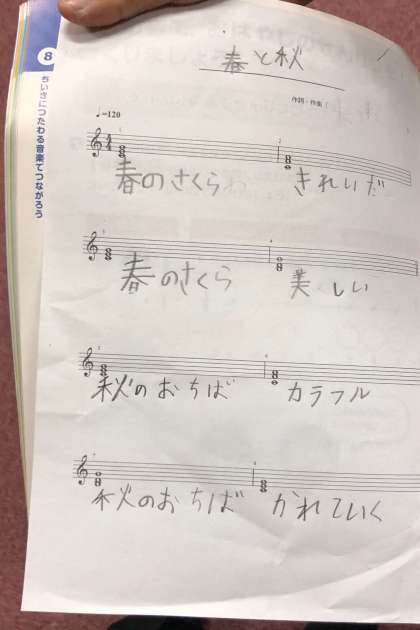 8
ちいきにつたわる音楽でつながろう
春と秋
作詞・作曲（
♩=120
春のさくら きれいだ
春のさくら 美しい
秋のおちば カラフル
秋のおちば かれていく